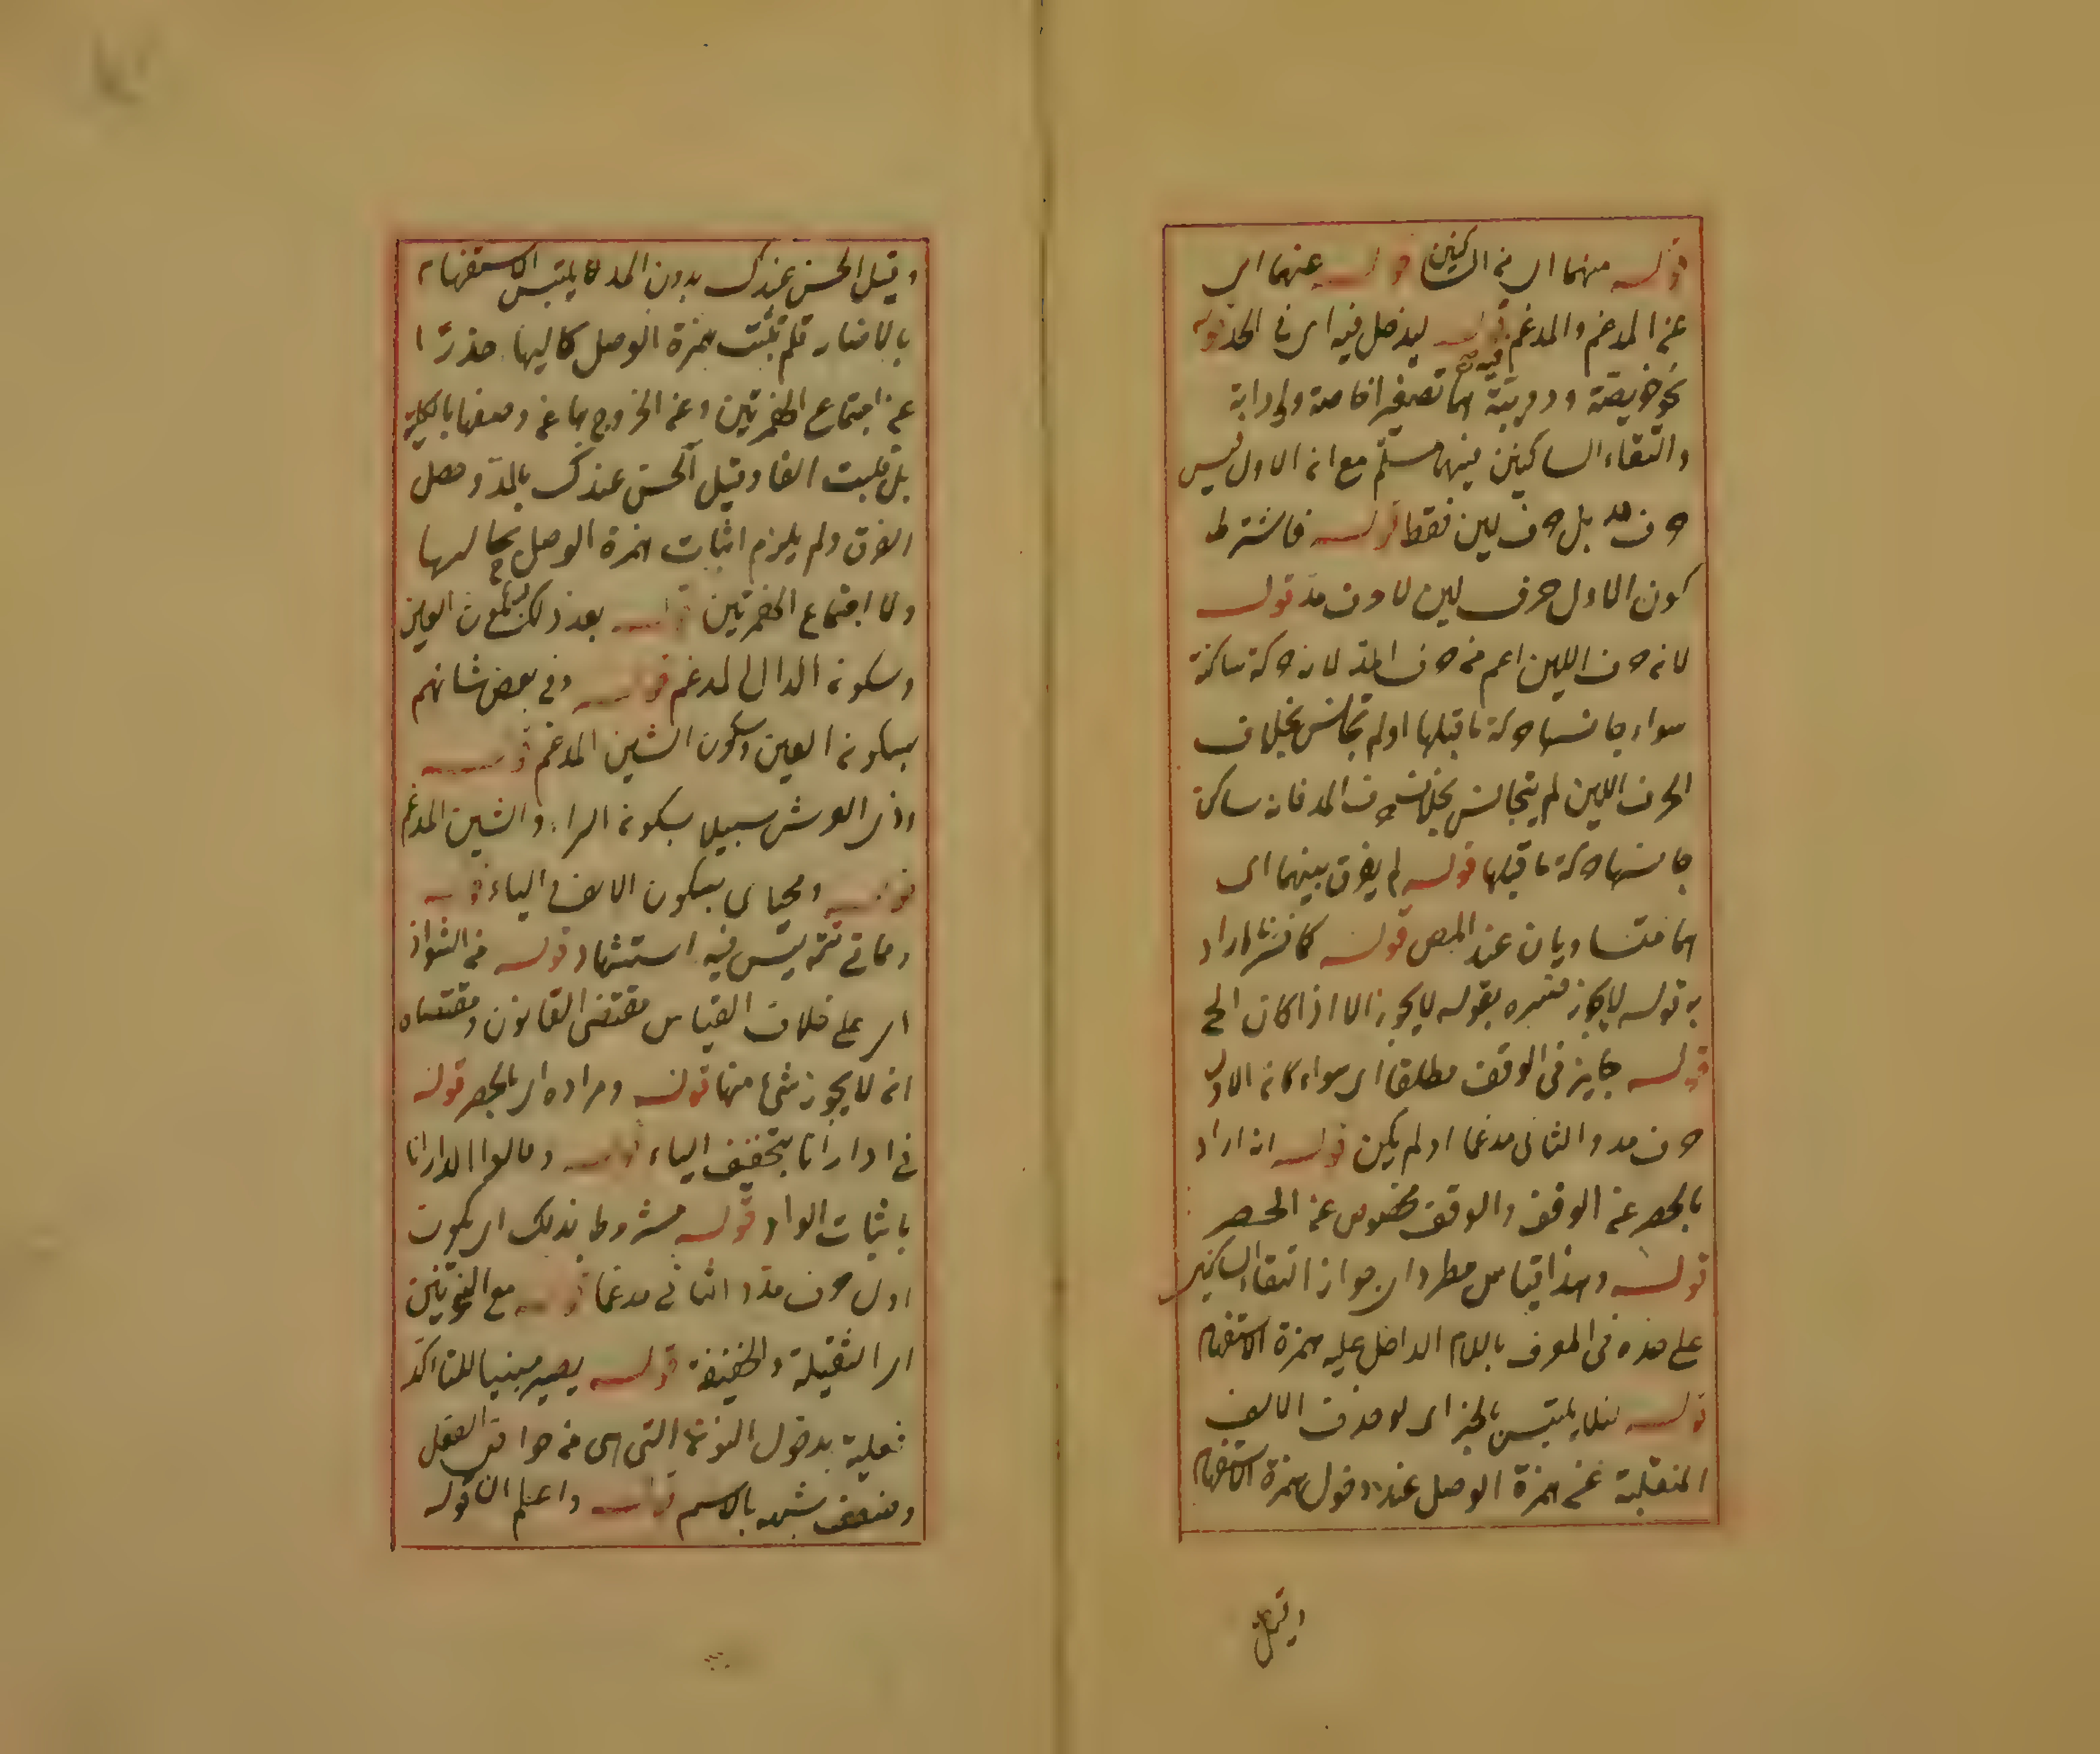 قوله منهما اى من الساكنين قوله عنهما اى
عن المدغم والمدغم فيه قوله ليدخل فيه اى فى الحد قوله
نحو خويصة ودويبة هما تصغيرا خاصة ودابة
والتقاء الساكنين فيهما مسلم مع ان الاول ليس
حرف مد بل حرف لين فقط قوله فاشترط
كون الاول حرف لين لا حرف مد قوله
لان حرف اللين اعم من حرف المد لانه حركة ساكنة
سواء جانسها حركة ما قبلها اولم تجانس بخلاف
الحرف اللين لم يتجانس بخلاف حرف المد فانه ساكن
جانسها حركة ما قبلها قوله لم يفرق بينهما اى
هما متساويان عند المص قوله كما فسرنا اراد
به قوله لا يجوز فسره بقوله لا يجوز الا اذا كان الخ
قوله جايز فى الوقف مطلقا اى سواء كان الاول
حرف مد والثانى مدغما اولم يكن قوله ان اراد
بالحصر عن الوقف والوقف مخصوص عن الحصر
قوله وهذا قياس مطرد اى جواز التقاء الساكنين
على حده فى المعرف باللام الداخل عليه همزة الاستفهام
قوله لئلا يلتبس بالخبر اى لو حذف الالف
المنقلبة عن همزة الوصل عند دخول همزة الاستفهام
وقيل
وقيل الحسن عندك بدون المد لا يلتبس الاستفهام
بالاخبار فلم تثبت همزة الوصل كاليها حذرا
عن اجتماع الهمزتين وعن الخروج بها عن وصفها بالكلية
بل قلبت الفا وقيل آلحسن عندك بالمد وحصل
الفرق ولم يلزم اثبات همزة الوصل بحالها
ولا اجتماع الهمزتين قوله بعد ذلك بسكون العين
وسكون الدال المدغم قوله وفى بعض شانهم
بسكون العين وسكون الشين المدغم قوله
وذى العرش سبيلا بسكون الراء والشين المدغم
قوله ومحياى بسكون الالف والياء قوله
ومماتى تتمة ليس فيه استشهاد قوله من الشواذ
اى على خلاف القياس مقتضى القانون ومقتضاه
انه لا يجوز شئ منها قوله ومراده اى بالحصر قوله
فى ادارانا بتخفيف الياء قوله وقالوا الدارانا
باثبات الواو قوله مشروطا بذلك اى بكون
اول حرف مد والثانى مدغما قوله مع النونين
اى الثقيلة والخفيفة قوله يصير مبنيا للتأكد
فعلية بدخول النون التى هى من خواص الفعل
وضعف شبهه بالاسم قوله واعلم ان قوله